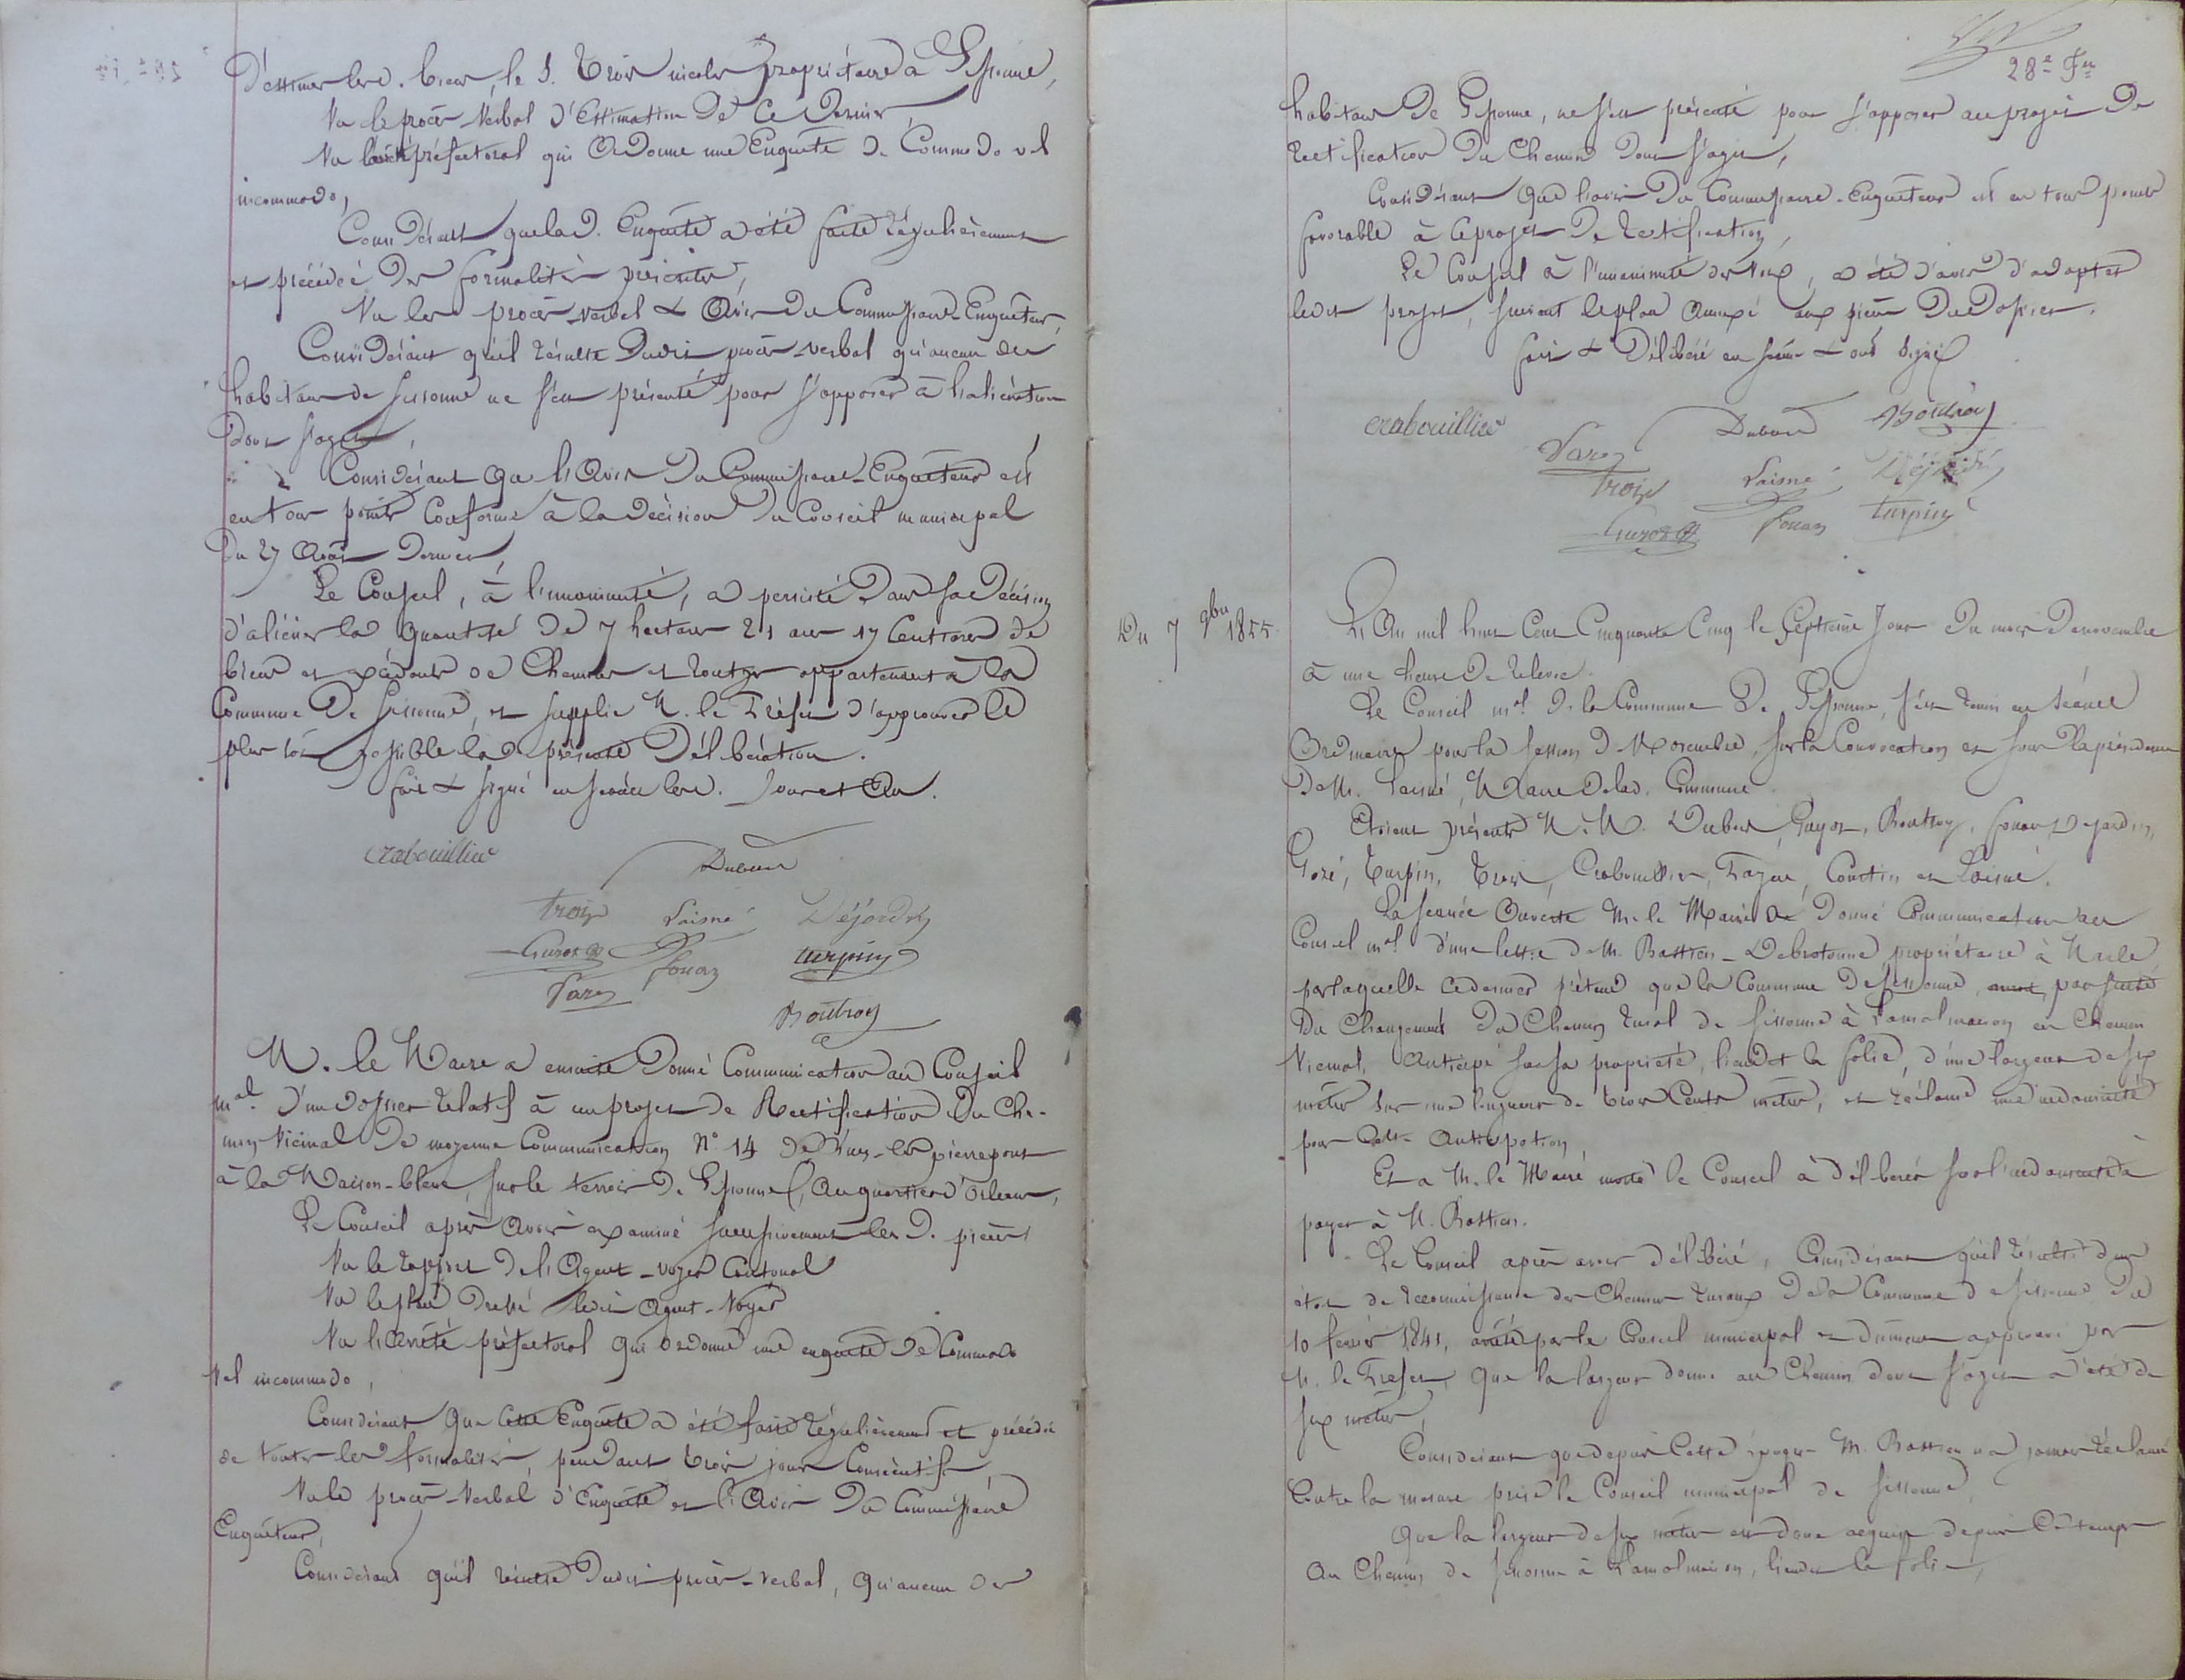 D'estimer lesd. biens, le S. Troir nicolas propriétaire à Sissonne,
Vu le procès-verbal d'Estimation de ce dernier
Vu l'arrêté préfectoral qui Ordonne une Enquête de Commodo vel
incommodo,
Considérant que lad. Enquête a été faite régulièrement
et précédée des formalités prescrites,
Vu les procès-verbal & Avis du Commissaire-Enquêteur,
Considérant qu'il résulte dudit procès-verbal qu'aucun des
habitans de Sissonne ne s'est présenté pour s'opposer à l'aliénation
dont s'agit,
Considérant que l'Avis du Commissaire-Enquêteur est
en tous points Conforme à la décision du Conseil municipal
du 27 Août dernier,
Le Conseil, à l'unanimité, a persisté dans sa décision
d'aliéner la quantité de 7 hectares 21 ares 17 Centiares de
biens et excédents de Chemins et routes appartenant à la
Commune de Sissonne, et supplie M. le Préfet d'approuver le
plus tôt possible la présente Délibération.
fait & signé en séance lesd. Jour et An.
Crabouillier Dubois
Troiz Laisné Déjardin
Guyot Fouan Turpin
Vazé Boutroy
M. le Maire a ensuite donné Communication au Conseil
mal. d'un dossier relatif à un projet de Rectification du Che-
min vicinal de moyenne Communication N° 14 de Vivres-les-pierrepont
à la Maison-bleue, sur le terroir de Sissonne, au quartier d'Orléans,
Le Conseil après avoir examiné successivement lesd. pièces
Vu le rapport de l'Agent-voyer Cantonal
Vu le plan dressé ledit Agent-Voyer
Vu l'arrêté préfectoral qui ordonne une enquête de Commodo
vel incommodo,
Considérant que cette Enquête a été faite régulièrement et précédée
de toutes les formalités, pendant trois jours Consécutifs,
Vu le procès-verbal d'Enquête et l'Avis du Commissaire
Enquêteur,
Considérant qu'il résulte dudit procès-verbal, qu'aucun des
28e Fet
habitans de Sissonne, ne s'est présenté pour s'opposer au projet de
rectification du Chemin dont s'agit,
Considérant que l'avis du Commissaire-Enquêteur est en tous points
favorable à ce projet de rectification,
Le Conseil à l'unanimité des voix, a été d'avis d'adopter
ledit projet, suivant le plan annexé aux pièces du dossier.
fait & Délibéré en séance & ont signé
Crabouillier Dubois Boutroy
Vazé Troiz Laisné Déjardin
Guyot Fouan Turpin
Du 7 9bre 1855
L'An mil huit Cent Cinquante Cinq le Septième Jour du mois de novembre
à une heure de relevée.
Le Conseil mal de la Commune de Sissonne, s'est réuni en séance
Ordinaire pour la session de Novembre, sur la Convocation et sous la présidence
de M. Laisné, Maire de lad. Commune.
Etaient présents M.M. Dubois, Guyot, Boutroy, fouan, Dejardin,
Gozé, Turpin, Troir, Crabouillier, Fazué, Courtin et Laisné.
La séance Ouverte M. le Maire a donné Communication au
Conseil mal d'une lettre de M. Bastien-Debrotonne, propriétaire à Marle
par laquelle ce dernier prétend que la Commune de Sissonne, par suite
du Changement du Chemin rural de Sissonne à Lamalmaison en Chemin
vicinal, anticipé sur sa propriété, lieudit la folie, d'une largeur de six
mètres sur une longueur de trois Cents mètres, et réclame une indemnité
pour cette Anticipation
Et a M. le Maire invité le Conseil à délibérer sur l'indemnité à
payer à M. Bastien.
Le Conseil après avoir délibéré, Considérant qu'il résulte d'un
état de reconnaissance des Chemins ruraux de la Commune de Sissonne du
10 février 1841, arrêté par le Conseil municipal et dûment approuvé par
M. le Préfet, que la largeur donnée au Chemin dont s'agit a été de
six mètres,
Considérant que depuis Cette époque M. Bastien n'a jamais réclamé
Contre la mesure prise le Conseil municipal de Sissonne,
Que la largeur de six mètres est donc acquise depuis Ce temps
au Chemin de Sissonne à Lamalmaison, lieudit la folie,